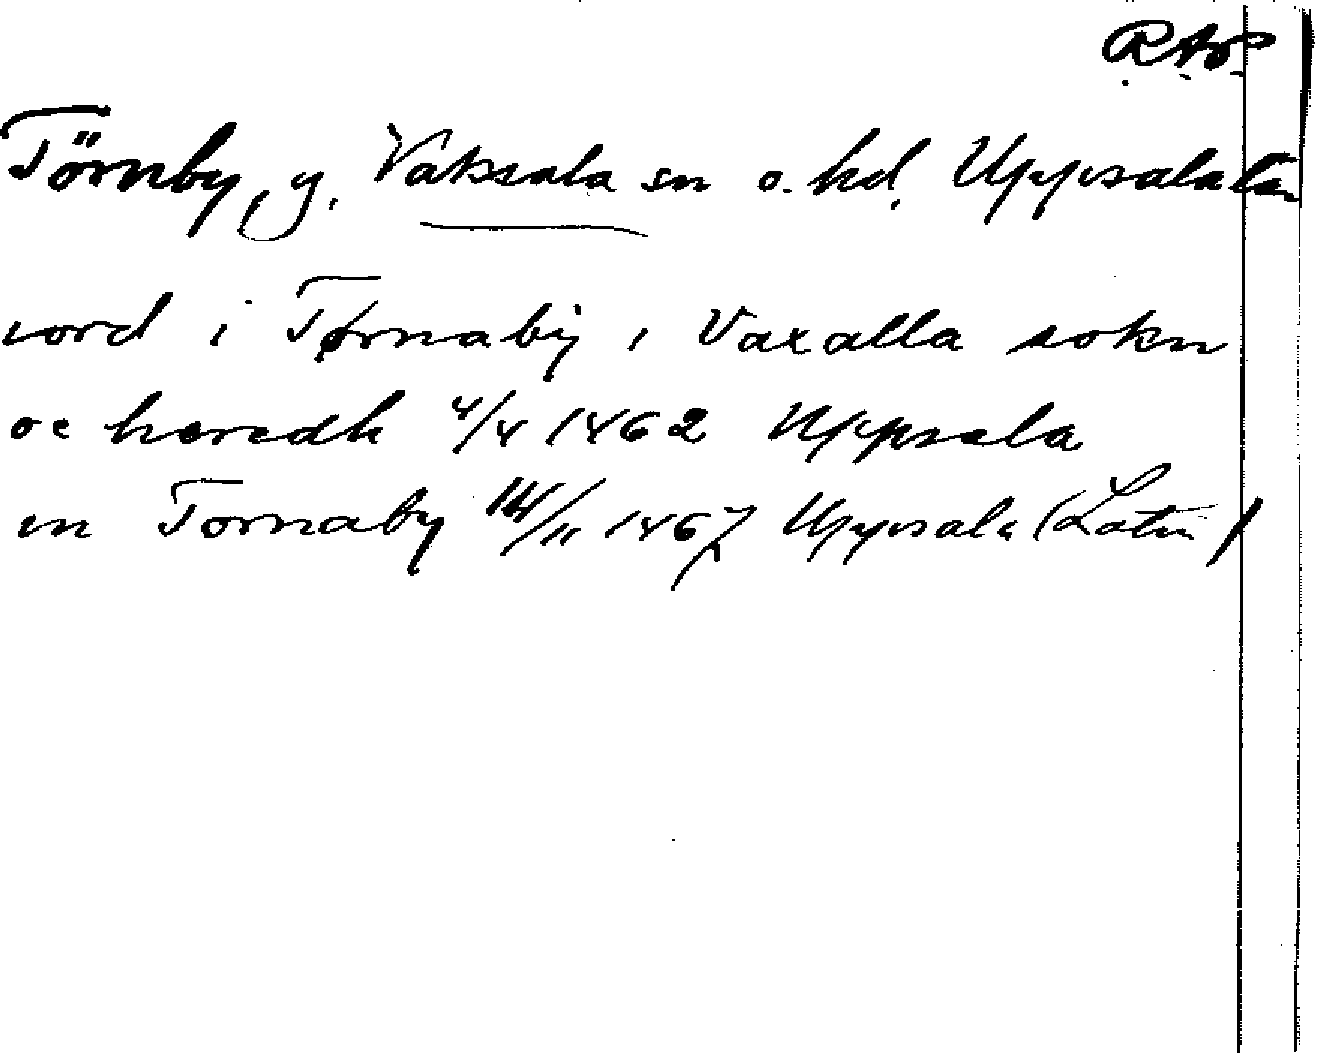 RAö
Törnby, g. Vaksala sn o. hd. Uppsala län
iord i Tørnabÿ i Vaxalla sokn
oc hæredh 4/4 1462 Uppsala
in Tornaby 14/11 1467 Uppsala (Latin)